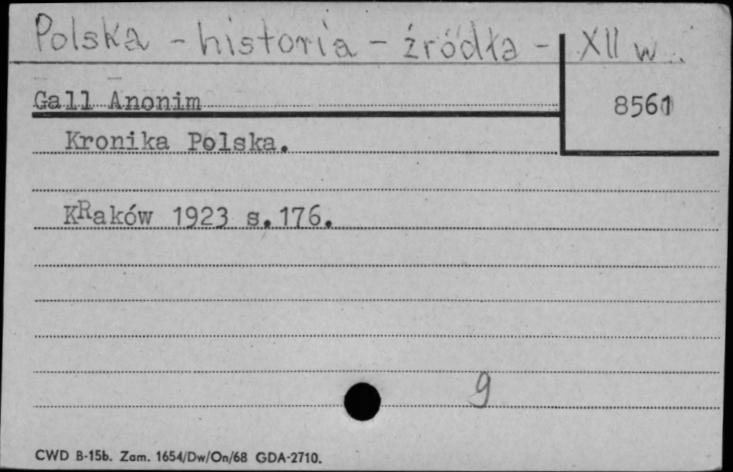 Polska - historia - źródła - XII w.
Gall Anonim
8561
Kronika Polska.
KRaków 1923 s.176.
9
CWD B-15b. Zam. 1654/Dw/On/68 GDA-2710.